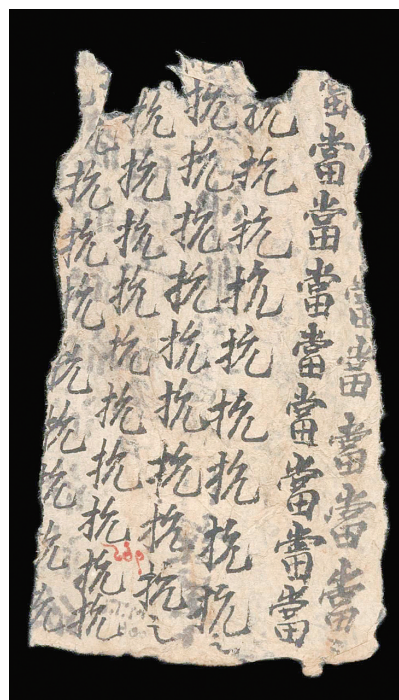 當當當當當
當當當當當當當當當
抗抗抗抗抗抗抗抗抗
抗抗抗抗抗抗抗抗抗之
抗抗抗抗抗抗抗抗抗抗
抗抗抗抗抗抗抗抗抗